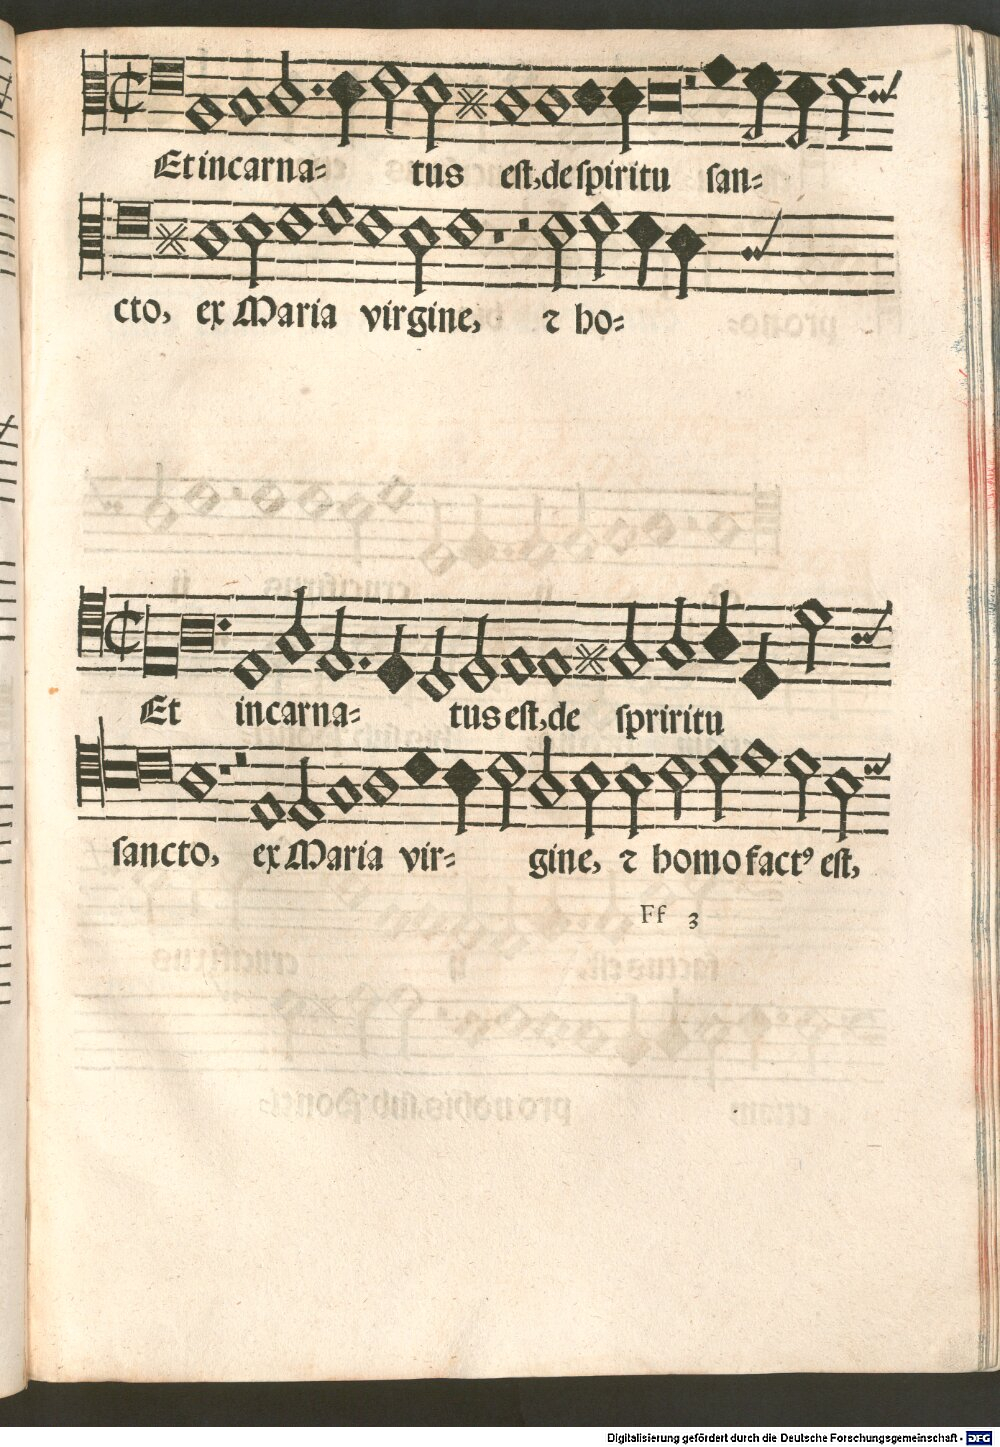 Et incarna= tus est, de spiritu san=
cto, ex Maria virgine, ⁊ ho=
Et incarna= tus est, de spriritu
sancto, ex Maria vir= gine, ⁊ homo factꝰ est,
Ff 3
Digitalisierung gefördert durch die Deutsche Forschungsgemeinschaft - DFG